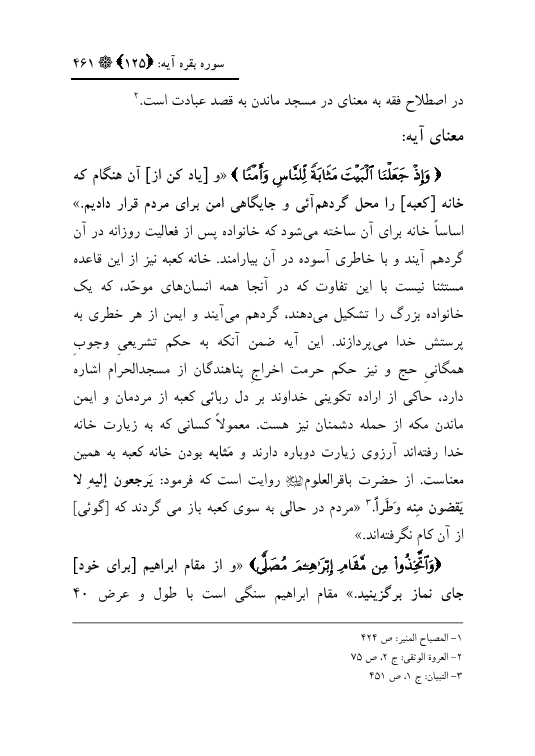 سوره بقره آیه: ﴿۱۲۵﴾ ۴۶۱
در اصطلاح فقه به معنای در مسجد ماندن به قصد عبادت است.۲
معنای آیه:
﴿ وَإِذْ جَعَلْنَا ٱلْبَيْتَ مَثَابَةً لِّلنَّاسِ وَأَمْنًا ﴾ «و [یاد کن از] آن هنگام که
خانه [کعبه] را محل گردهم‌آئی و جایگاهی امن برای مردم قرار دادیم.»
اساساً خانه برای آن ساخته می‌شود که خانواده پس از فعالیت روزانه در آن
گردهم آیند و با خاطری آسوده در آن بیارامند. خانه کعبه نیز از این قاعده
مستثنا نیست با این تفاوت که در آنجا همه انسان‌های موحّد، که یک
خانواده بزرگ را تشکیل می‌دهند، گردهم می‌آیند و ایمن از هر خطری به
پرستش خدا می‌پردازند. این آیه ضمن آنکه به حکم تشریعیِ وجوبِ
همگانیِ حج و نیز حکم حرمت اخراجِ پناهندگان از مسجدالحرام اشاره
دارد، حاکی از اراده تکوینی خداوند بر دل ربائی کعبه از مردمان و ایمن
ماندن مکه از حمله دشمنان نیز هست. معمولاً کسانی که به زیارت خانه
خدا رفته‌اند آرزوی زیارت دوباره دارند و مَثابه بودن خانه کعبه به همین
معناست. از حضرت باقرالعلوم روایت است که فرمود: یَرجعون إلیهِ لا
یَقضون مِنه وَطَراً.۳ «مردم در حالی به سوی کعبه باز می گردند که [گوئی]
از آن کام نگرفته‌اند.»
﴿وَٱتَّخِذُوا۟ مِن مَّقَامِ إِبْرَٰهِـۧمَ مُصَلًّى﴾ «و از مقام ابراهیم [برای خود]
جای نماز برگزینید.» مقام ابراهیم سنگی است با طول و عرض ۴۰
۱- المصباح المنیر: ص ۴۲۴
۲- العروة الوثقی: ج ۲، ص ۷۵
۳- التبیان: ج ۱، ص ۴۵۱